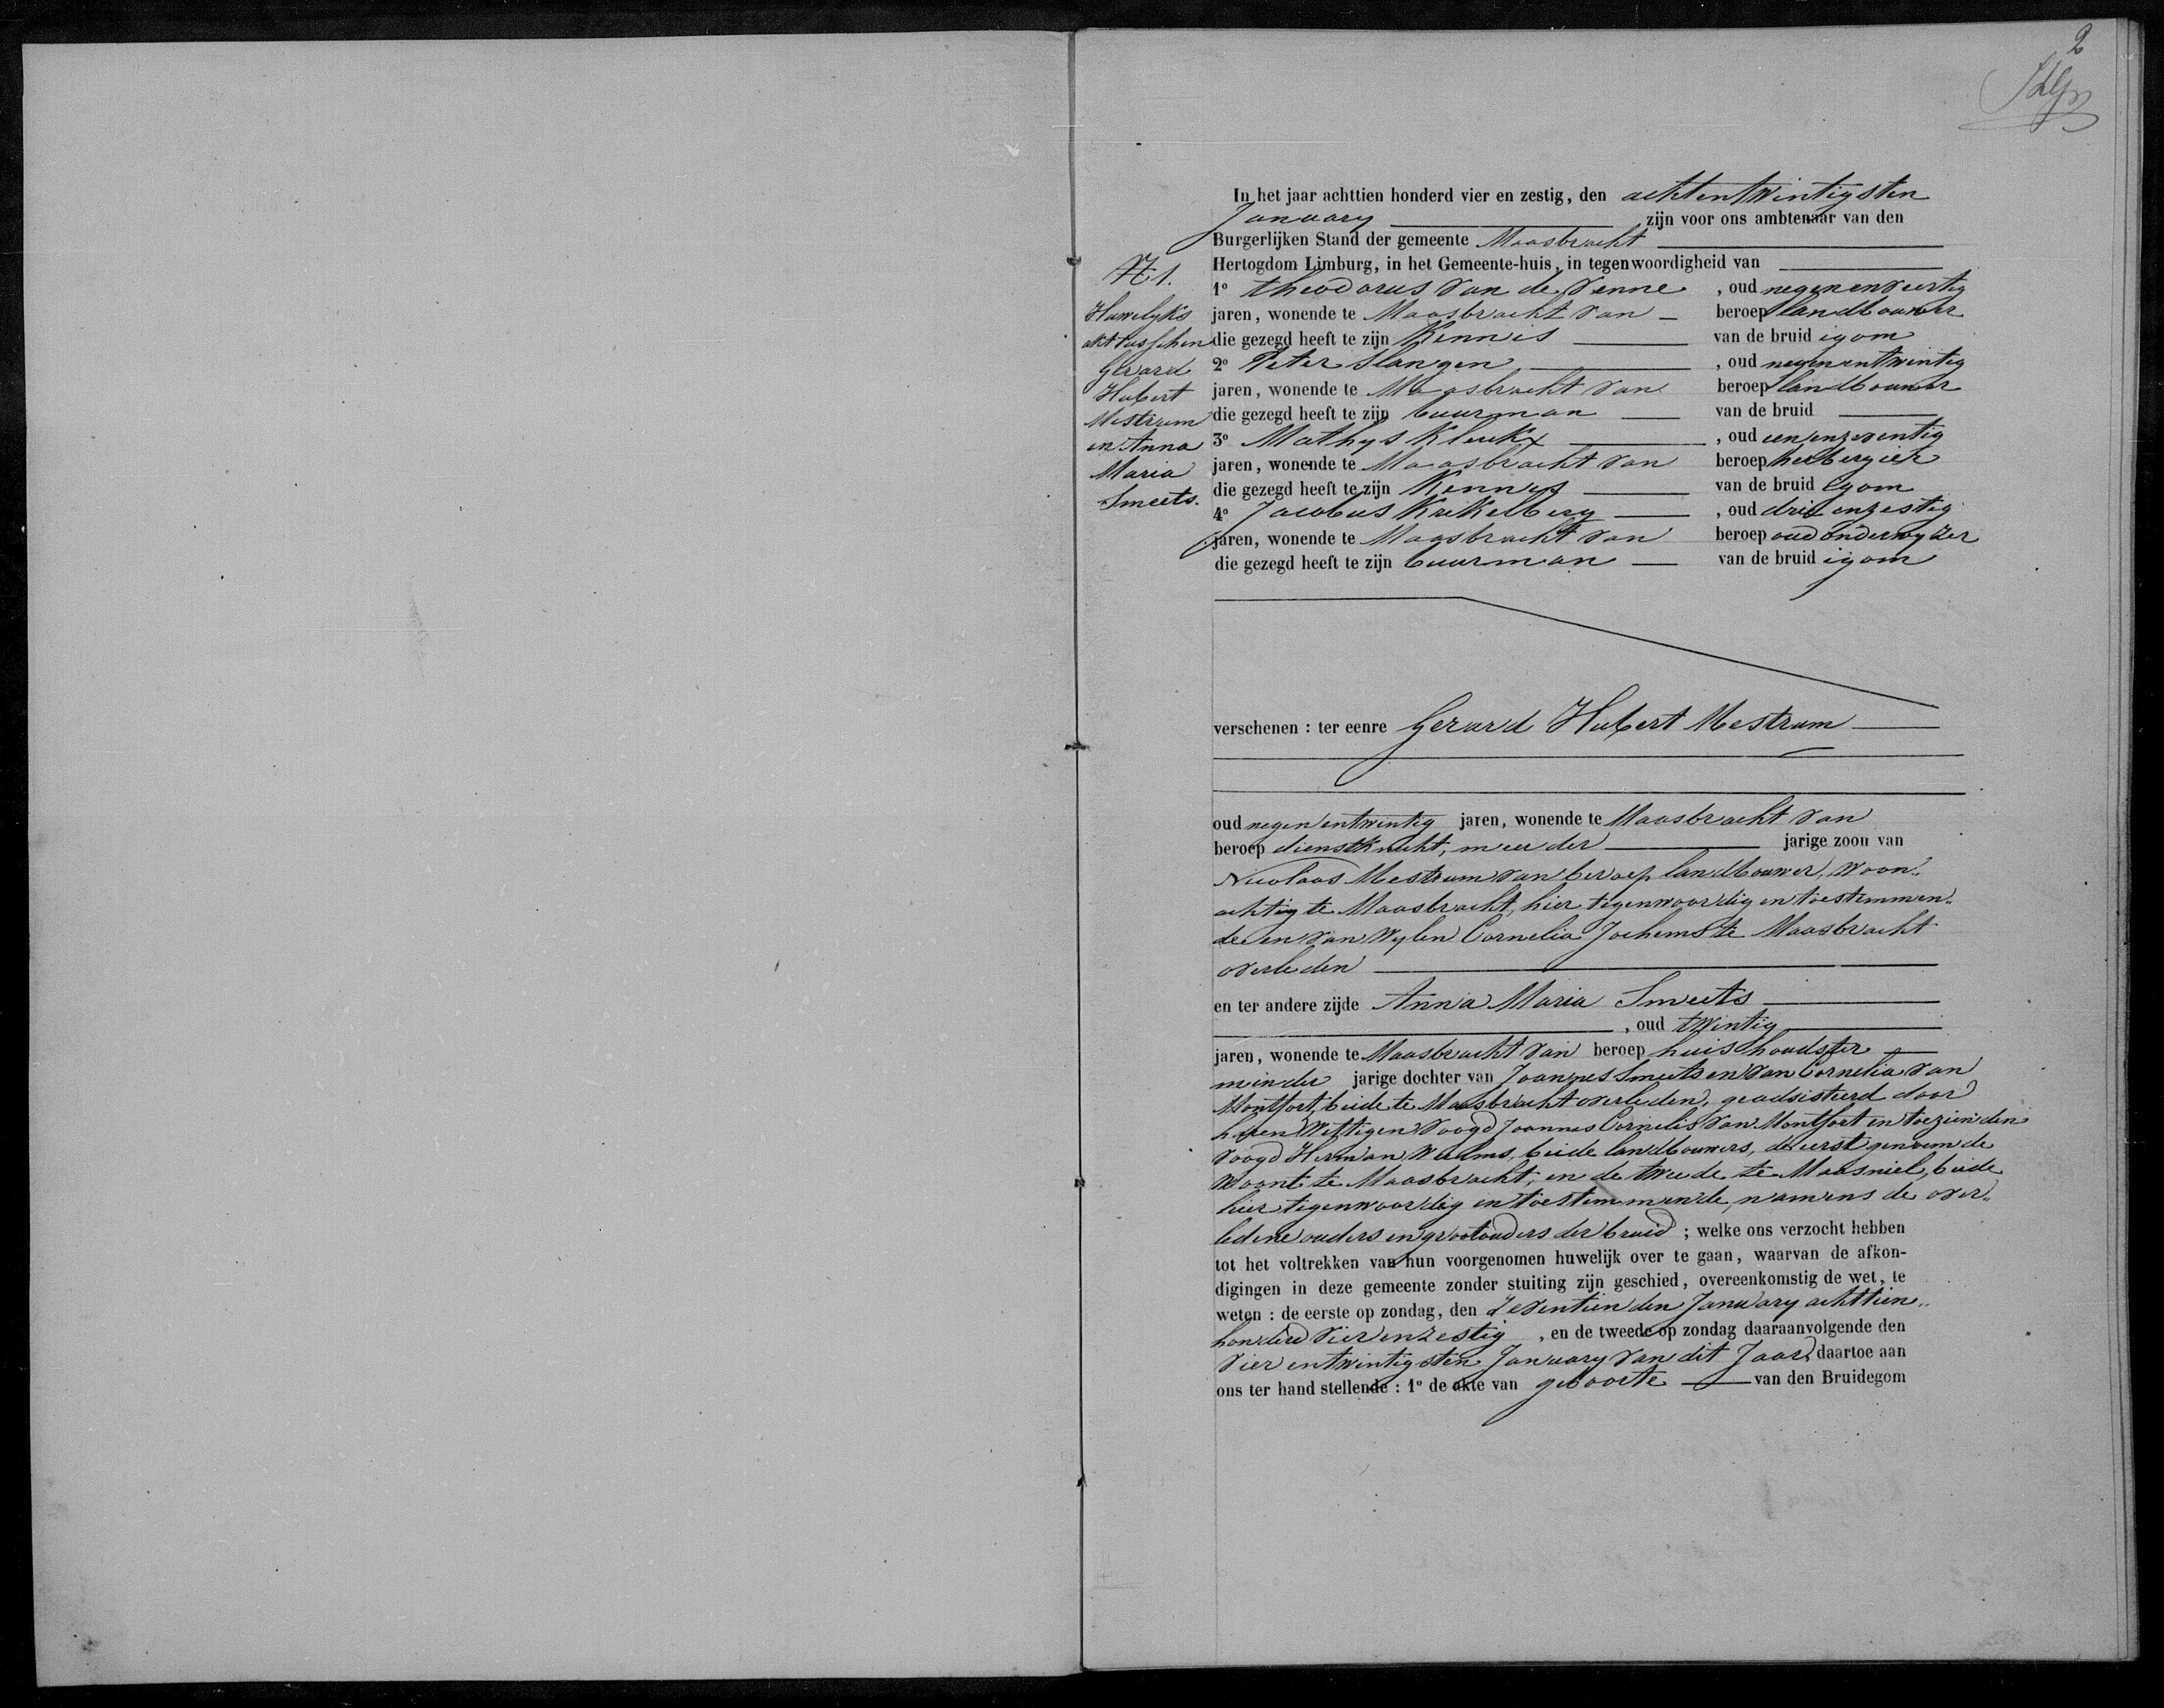 2
In het jaar achttien honderd vier en zestig, den achtentwintigsten
January zijn voor ons ambtenaar van den
Burgerlijken Stand der gemeente Maasbracht
Hertogdom Limburg, in het Gemeente-huis, in tegenwoordigheid van
1º Theodorus van de Venne, oud negenenveertig
jaren, wonende te Maasbracht van beroep landbouwer
die gezegd heeft te zijn Kennis van de bruid igom
2º Peter Slangen, oud negenentwintig
jaren, wonende te Maasbracht van beroep landbouwer
die gezegd heeft te zijn buurman van de bruid
3º Mathys Kluckx, oud eenenzeventig
jaren, wonende te Maasbracht van beroep herbergier
die gezegd heeft te zijn Kennis van de bruid igom
4º Jacobus Krikelberg, oud drie enzestig
jaren, wonende te Maasbracht van beroep oud onderwyzer
die gezegd heeft te zijn buurman van de bruid igom
N 1.
Huwelyks
akt tusschen
Gerard
Hubert
Mestrum
en Anna
Maria
Smeets.
verschenen : ter eenre Gerard Hubert Mestrum
oud negenentwintig jaren, wonende te Maasbracht van
beroep dienstknecht, meerder jarige zoon van
Nicolaas Mestrum van beroep landbouwer, woon„
achtig te Maasbracht, hier tegenwoordig en toestemmen„
de en van wylen Cornelia Jochems te Maasbracht
overleden
en ter andere zijde Anna Maria Smeets
, oud twintig
jaren, wonende te Maasbracht van beroep huishoudster
minder jarige dochter van Joannes Smeets en van Cornelia van
Montfort, beide te Maasbracht overleden, geadsisteerd door
haren Wettigen voogd Joannes Cornelis van Montfort en toezienden
voogd Herman Willms, beide landbouwers, de eerst genoemde
woont te Maasbracht, en de tweede te Maasniel, beide
hier tegenwoordig en toestemmende, namens de over„
ledene ouders en grootouders der bruid ; welke ons verzocht hebben
tot het voltrekken van hun voorgenomen huwelijk over te gaan, waarvan de afkon-
digingen in deze gemeente zonder stuiting zijn geschied, overeenkomstig de wet, te
weten : de eerste op zondag, den Zeventienden January achttien„
honderd vierenzestig, en de tweede op zondag daaraanvolgende den
vierentwintigsten January van dit Jaar, daartoe aan
ons ter hand stellende : 1º de akte van geboorte van den Bruidegom